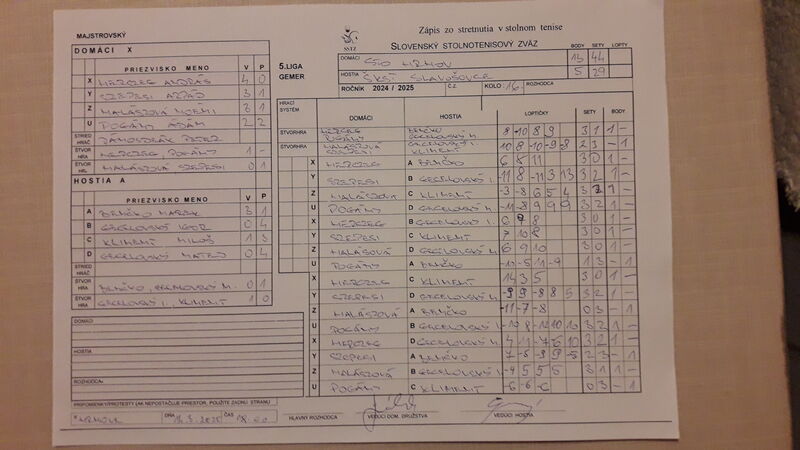 MAJSTROVSKÝ
Zápis zo stretnutia v stolnom tenise
SSTZ SLOVENSKÝ STOLNOTENISOVÝ ZVÄZ
DOMÁCI X
PRIEZVISKO MENO V P
X HERCZEG ANDRÁS 4 0
Y SZEPESI ARPÁD 3 1
Z MALÁSZOVÁ NOÉMI 3 1
U POGÁNY ÁDÁM 2 2
STRIED HRÁČ
ŠTVOR HRA HERCZEG, POGÁNY 1 -
ŠTVOR HRA MALÁSZOVÁ SZEPESI 0 1
HOSTIA A
PRIEZVISKO MENO V P
A MAREK 3 1
B GECELOVSKÝ IGOR 0 4
C KLIMENT MILOŠ 1 3
D GECELOVSKÝ MATEJ 0 4
STRIED HRÁČ
ŠTVOR HRA GECELOVSKÝ M. 0 1
ŠTVOR HRA GECELOVSKÝ I., KLIMENT 1 0
DOMÁCI:
HOSTIA:
ROZHODCA:
PRIPOMIENKY/PROTESTY (AK NEPOSTAČUJE PRIESTOR, POUŽITE ZADNÚ STRANU
5.LIGA
GEMER
DOMÁCI STO HRHOV
HOSTIA ŠKST SLAVOŠOVCE
BODY SETY LOPTY
13 44
5 29
ROČNÍK 2024 / 2025 Č.Z. KOLO 16. ROZHODCA
HRACÍ SYSTÉM DOMÁCI HOSTIA LOPTIČKY SETY BODY
ŠTVORHRA HERCZEG POGÁNY GECELOVSKÝ M. 8 -10 8 9 3 1 1 -
ŠTVORHRA MALÁSZOVÁ SZEPESI GECELOVSKÝ I. KLIMENT 10 8 -10 -9 -8 2 3 - 1
X HERCZEG A 6 8 11 3 0 1 -
Y SZEPESI B GECELOVSKÝ I. -11 8 -11 3 13 3 2 1 -
Z MALÁSZOVÁ C KLIMENT -3 -8 6 5 4 3 2 1 -
U POGÁNY D GECELOVSKÝ M. -11 -8 9 9 9 3 2 1 -
X HERCZEG B GECELOVSKÝ I. 6 8 3 0 1 -
Y SZEPESI C KLIMENT 7 10 8 3 0 1 -
Z MALÁSZOVÁ D GECELOVSKÝ M. 6 9 10 3 0 1 -
U POGÁNY A -5 11 -9 1 3 - 1
X HERCZEG C KLIMENT 14 3 5 3 0 1 -
Y SZEPESI D GECELOVSKÝ M. -9 9 -8 8 5 3 2 1 -
Z MALÁSZOVÁ A -11 -7 -8 0 3 - 1
U POGÁNY B GECELOVSKÝ I. -10 8 -12 10 10 3 2 1 -
X HERCZEG D GECELOVSKÝ M. 4 -7 10 3 2 1 -
Y SZEPESI A 7 -5 9 -5 2 3 - 1
Z MALÁSZOVÁ B GECELOVSKÝ I. -9 5 5 5 3 1 1 -
U POGÁNY C KLIMENT -6 -6 -6 0 3 - 1
V HRHOVE DŇA ČAS HLAVNÝ ROZHODCA VEDÚCI DOM. DRUŽSTVA VEDÚCI HOSTIA